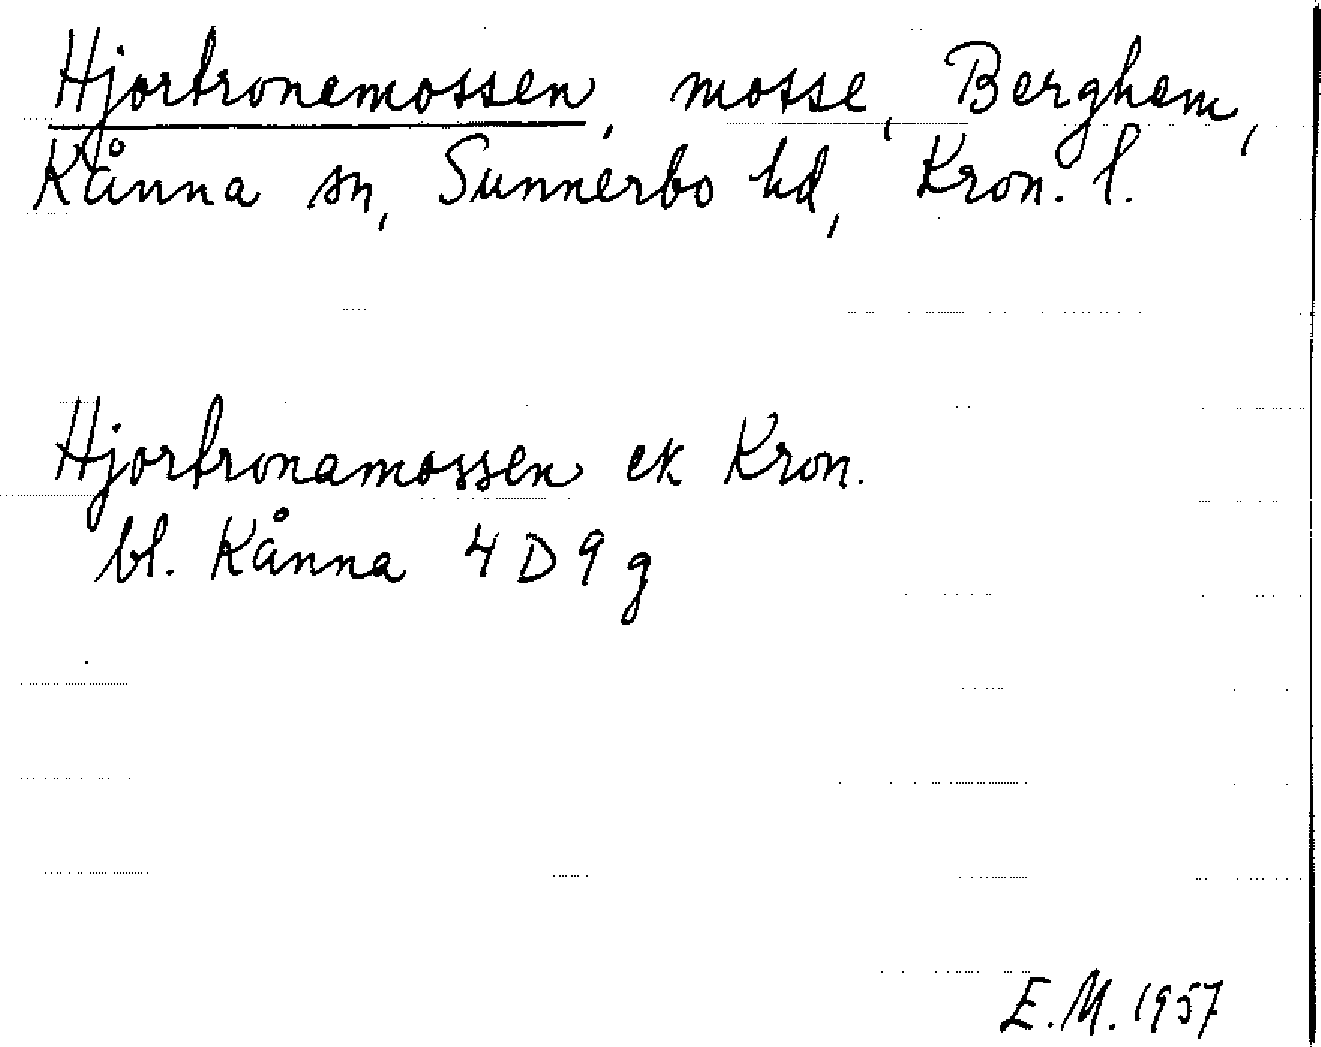 Hjortronamossen, mosse, Bergham,
Kånna sn, Sunnerbo hd, Kron. l.
Hjortronamossen ek Kron.
bl. Kånna 4 D 9 g
E.M. 1957